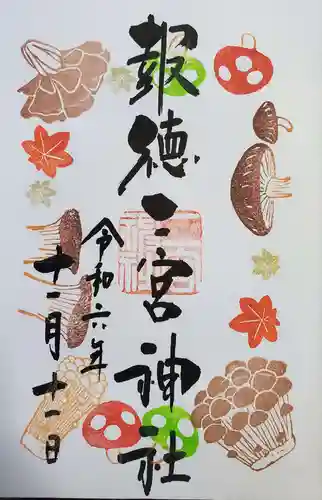 報徳二宮神社
令和六年
十一月十一日